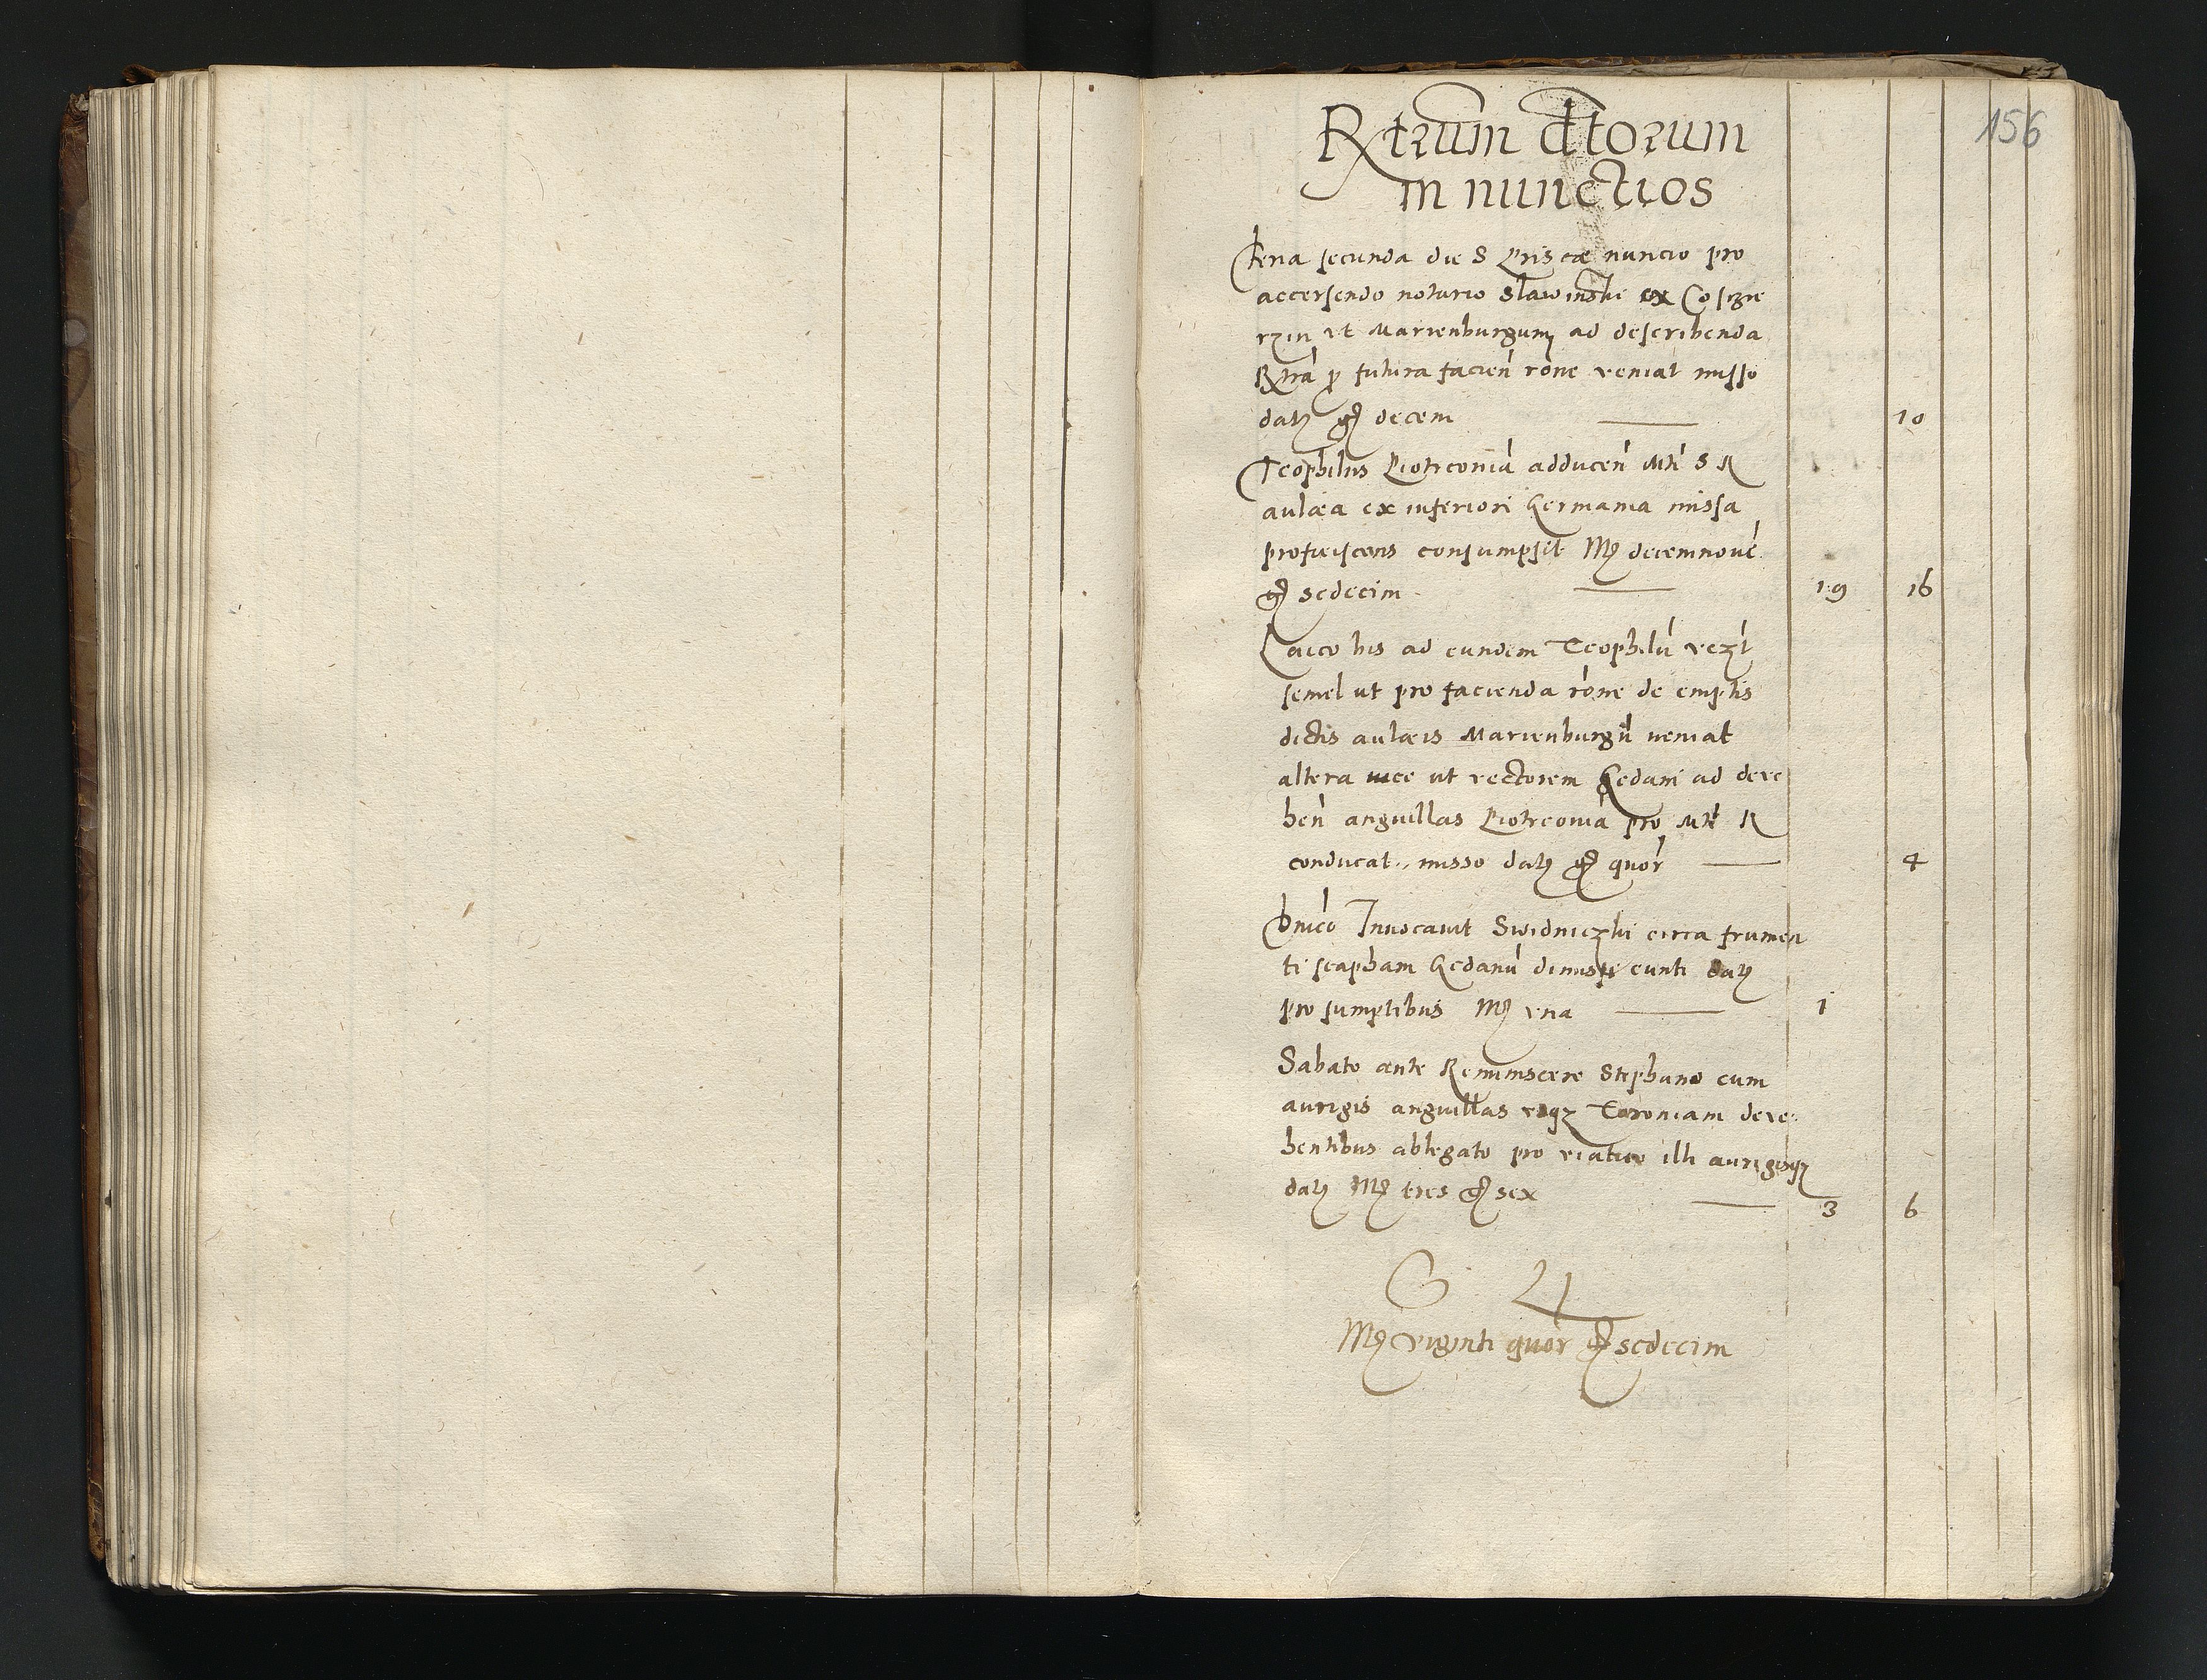 156
Rxtrum dtorum
in nunctios
Feria secunda die S Priscæ nuncio pro
accersendo notario Slawinski ex Coscze
rzin vt Marienburgum ad describenda
Rxtra p futura facien rone veniat misso
dat gr decem 10
Teophilus Piotrconia adducen Mti S R
aulæa ex inferiori Germania missa
proficiscens consumpsit Mr decemnove
gr sedecim 19 16
bis ad eundem Teophilu
semel ut pro facienda rone de emptis
dictis aulæis Marienburgu ueniat
altera uice ut vectorem Gedani ad deve
hen anguillas Piotrconia pro Mti R
conducat misso dat gr quor 4
Dnico Inuocauit Swidniczki circa frumen
ti scapham Gedanu dimissi eunti dat
pro sumptibus Mr vna 1
Sabato ante Reminiscere Stephano cum
aurigis anguillas vsqz Toroniam deve
hentibus ablegato pro viatico illi aurigisqz
dat Mr tres gr sex 3 6
Mr viginti quor gr sedecim